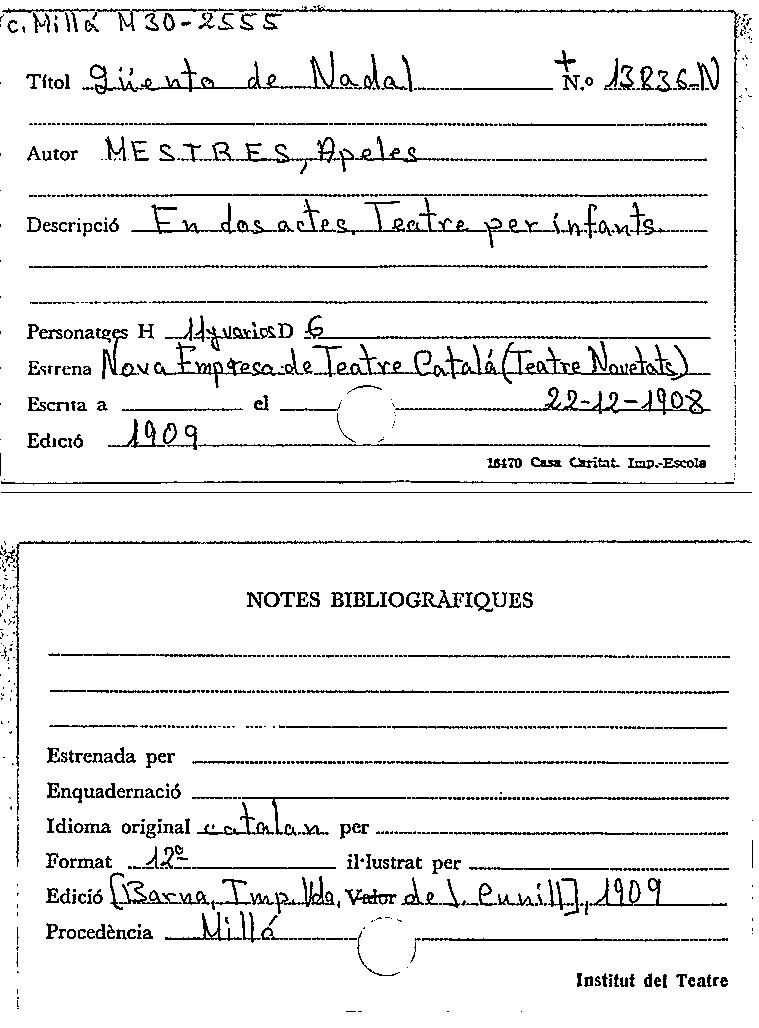 c. Millá M 30-2555
Títol Güento de Nadal + N.º 13836-N
Autor MESTRES, Apeles
Descripció En dos actes. Teatre per infants.
Personatges H 11 y varios D 6
Estrena Nova Empresa de Teatre Catalá (Teatre Novetats)
Escrita a el 22-12-1908
Edició 1909
16170 Casa Caritat. Imp.-Escola
NOTES BIBLIOGRÀFIQUES
Estrenada per
Enquadernació
Idioma original catalan per
Format 12º il·lustrat per
Edició [Barna, Imp. Vda, Valor de J. Cunill], 1909
Procedència Millá
Institut del Teatre